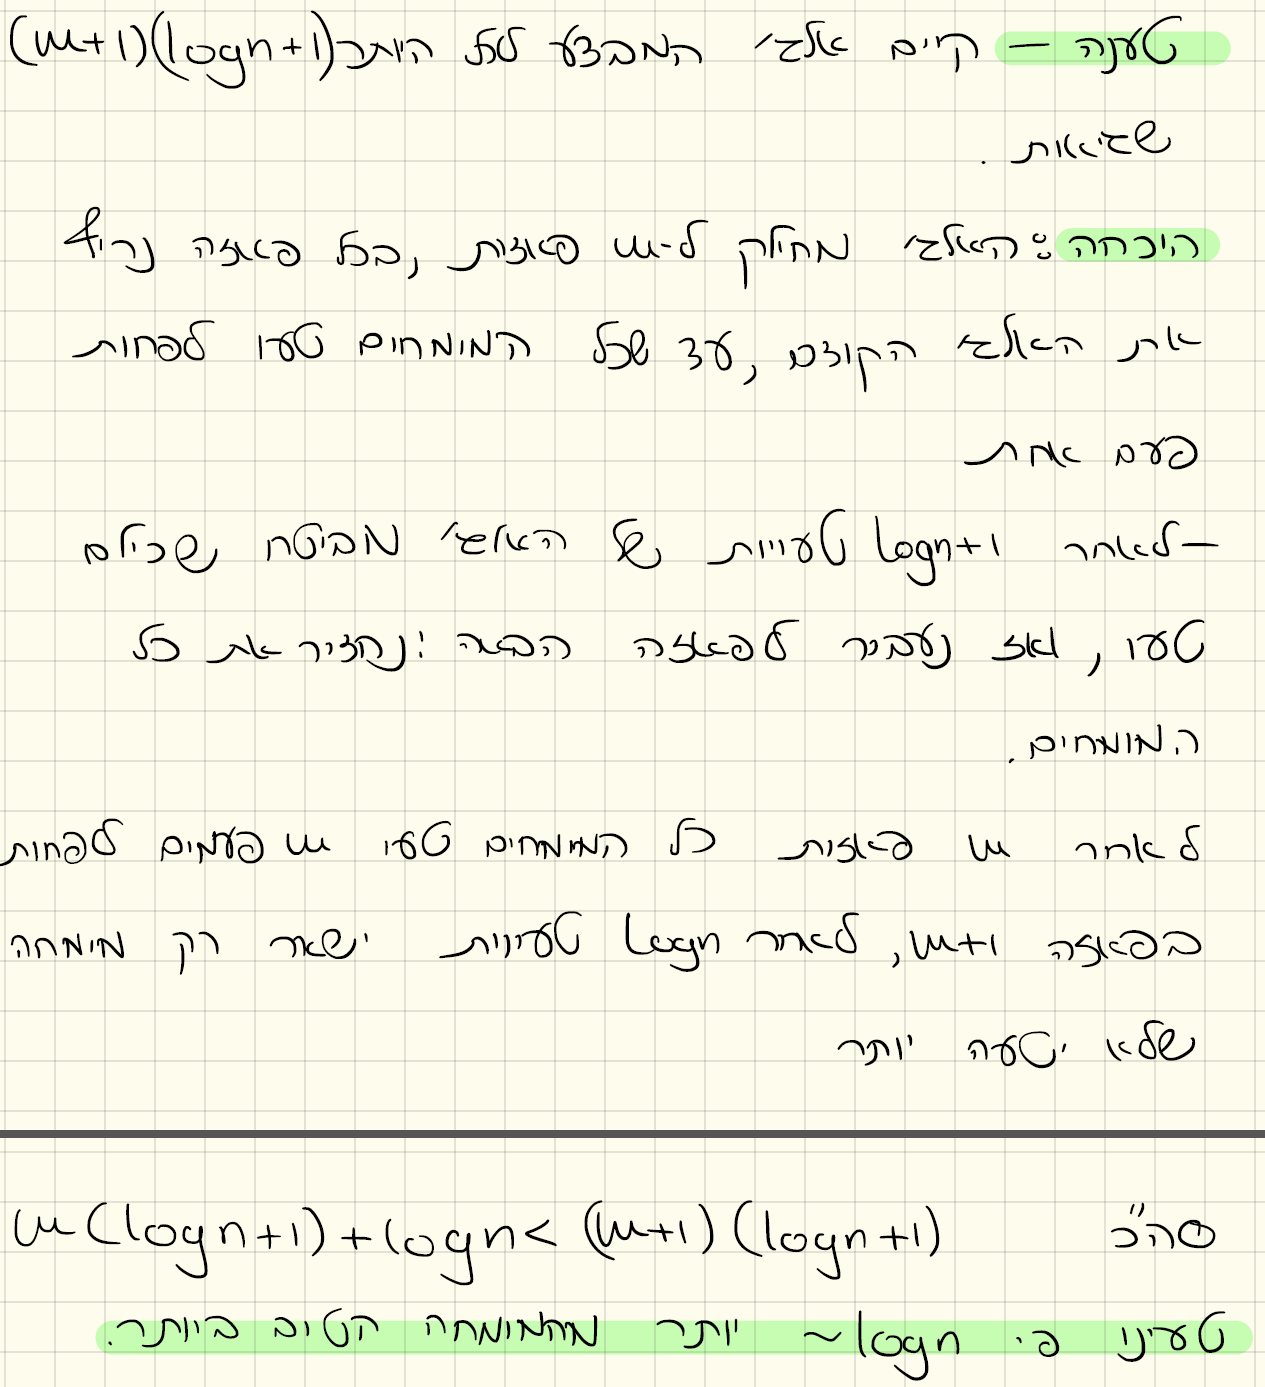 טענה – קיים אלג' המבצע לכל היותר (m+1)(logn+1)
שגיאות.
הוכחה: האלג' מחולק ל-m פאזות, בכל פאזה נריץ
את האלג' הקודם, עד שכל המומחים טעו לפחות
פעם אחת
– לאחר logn+1 טעויות של האלג' מובטח שכולם
טעו, ואז נעבור לפאזה הבאה: נחזיר את כל
המומחים.
לאחר m פאזות כל המומחים טעו m פעמים לפחות
בפאזה m+1, לאחר logn טעויות ישאר רק מומחה
שלא יטעה יותר
סה"כ m(logn+1)+logn< (m+1)(logn+1)
טעינו פי ~logn יותר מהמומחה הטוב ביותר.